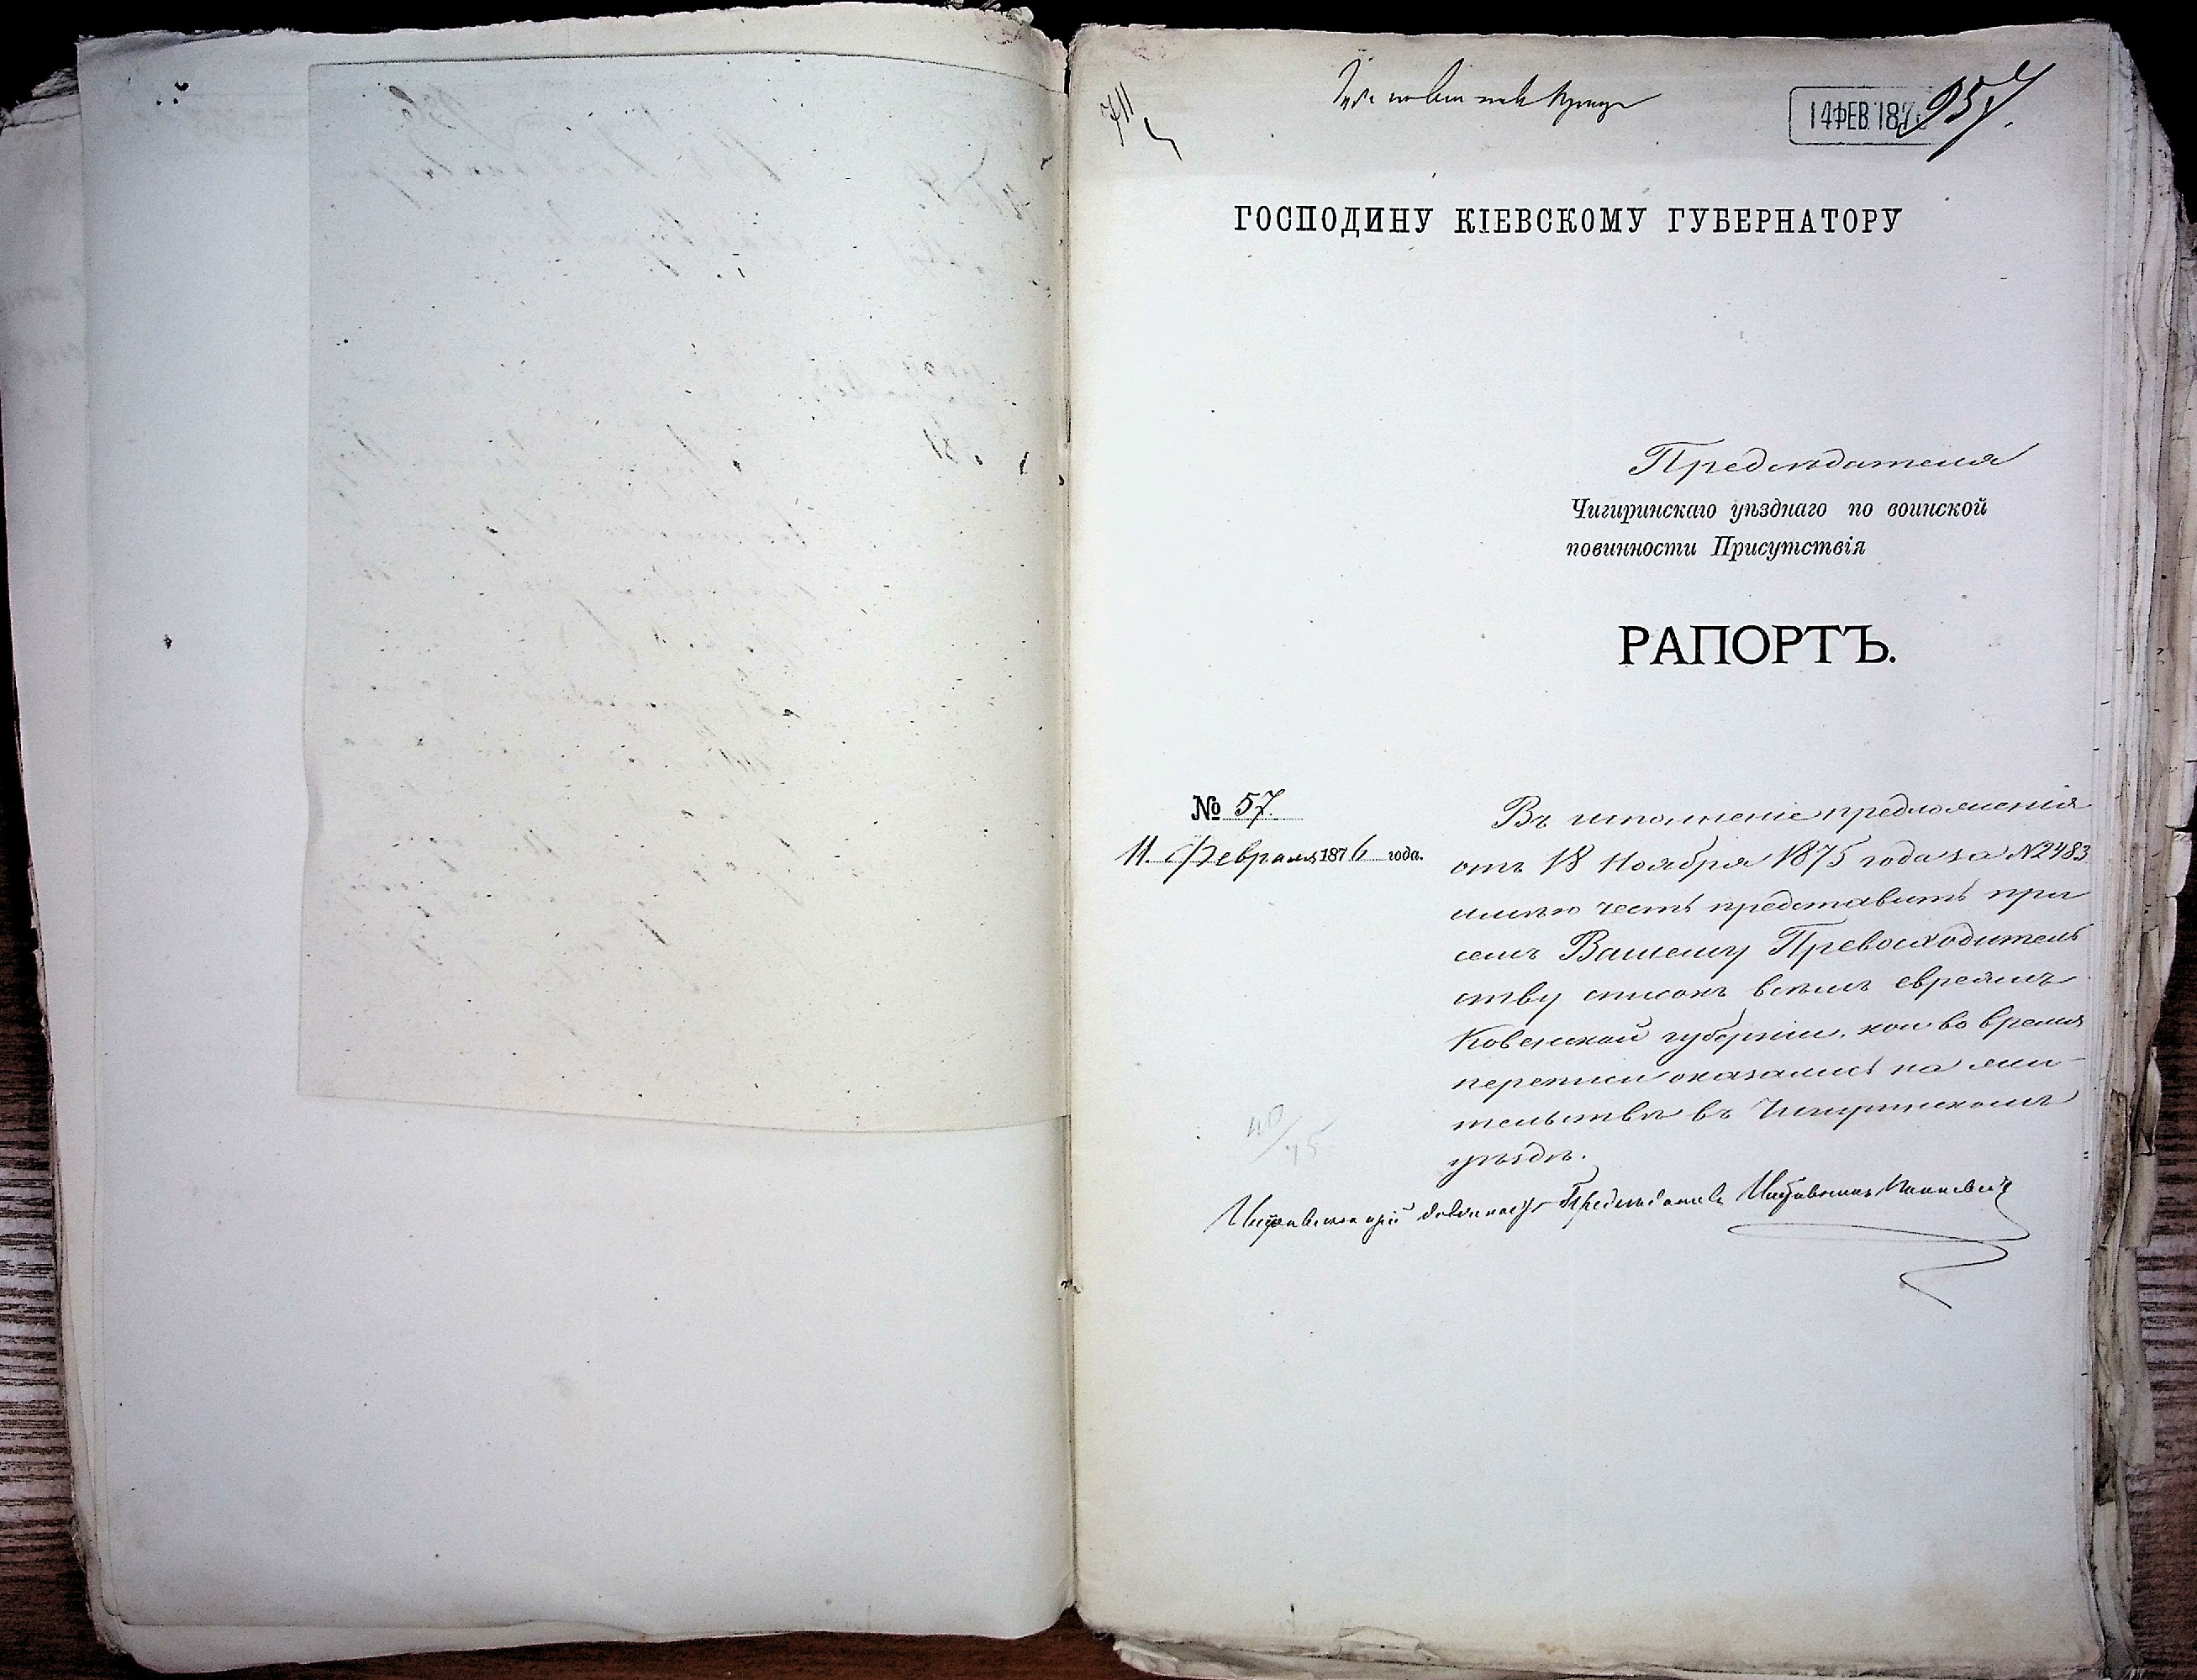 711
14 ФЕВ. 187
957.
ГОСПОДИНУ КІЕВСКОМУ ГУБЕРНАТОРУ
Предсѣдателя
Чигиринскаго уѣзднаго по воинской
повинности Присутствія
РАПОРТЪ.
№ 57.
11. Февраля 1876 года.
Въ исполненіе предложенія
отъ 18 Ноября 1875 года за №2483
имѣю честь представить при
семъ Вашему Превосходитель
ству списокъ всѣмъ евреямъ
Ковенской губерніи, кои во время
переписи оказались на жи-
тельствѣ въ Чигиринскомъ
уѣздѣ.
Предсѣдателя